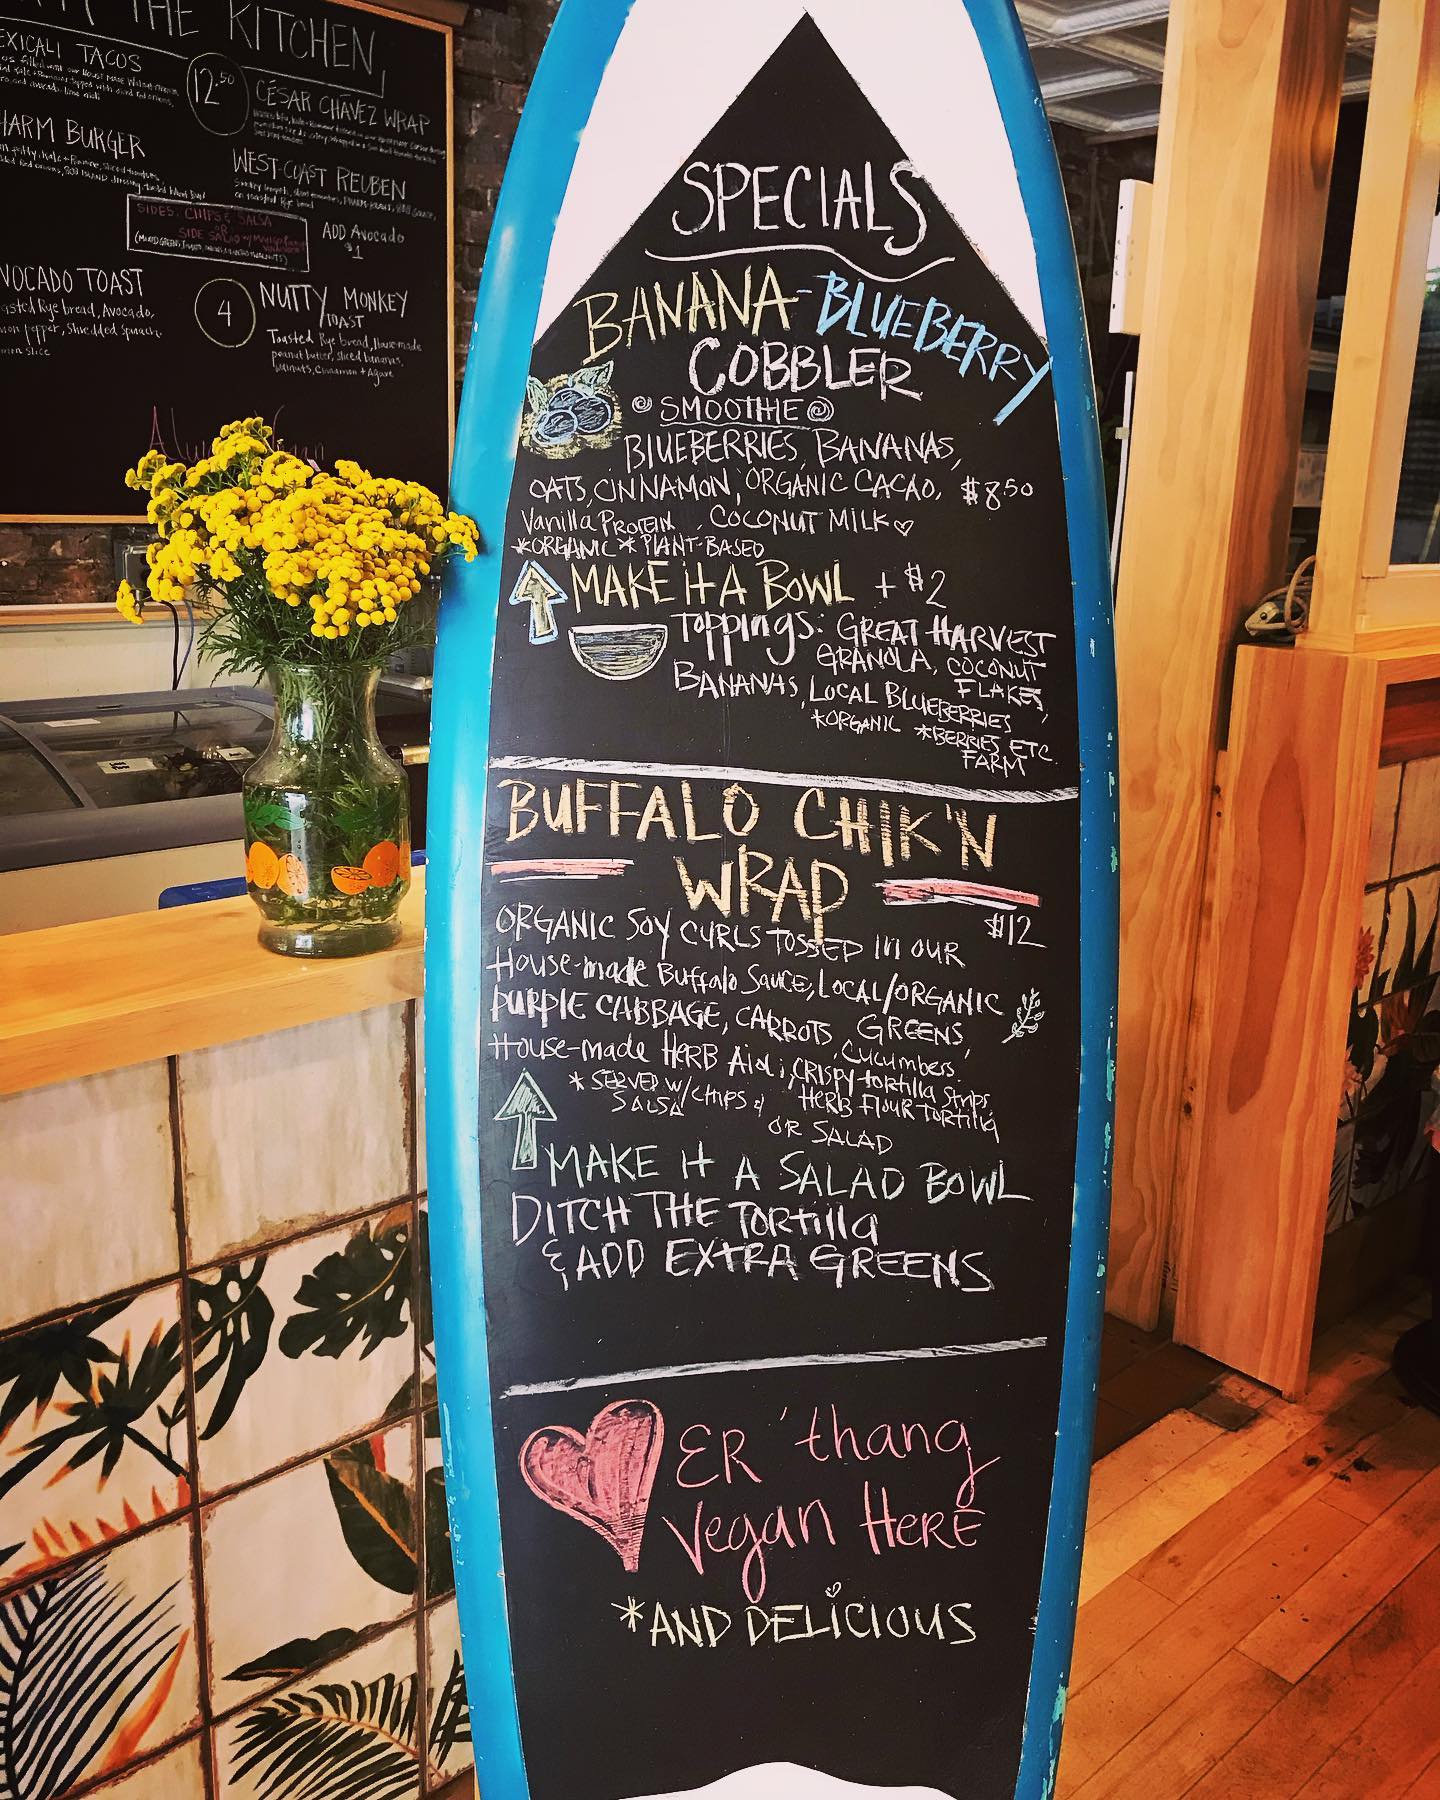 THE KITCHEN,
EXICALI TACOS
12.50
CÉSAR CHÁVEZ WRAP
HARM BURGER
WEST-COAST REUBEN
SIDES: CHIPS & SALSA
OR
SIDE SALAD W/
ADD Avocado
$1
VOCADO TOAST
Rye bread, Avocado,
pepper, Shredded Spinach,
slice
4
NUTTY MONKEY
TOAST
Toasted Rye bread, House-made
peanut butter, sliced bananas,
walnuts, Cinnamon + Agave
SPECIALS
BANANA-BLUEBERRY
COBBLER
SMOOTHIE
BLUEBERRIES, BANANAS,
OATS, CINNAMON, ORGANIC CACAO, $8.50
Vanilla Protein, COCONUT MILK
*ORGANIC * PLANT-BASED
MAKE it A BOWL + $2
Toppings: GREAT HARVEST
GRANOLA, COCONUT
FLAKES,
BANANAS, LOCAL BLUEBERRIES
*ORGANIC *BERRIES, ETC.
FARM
BUFFALO CHIK'N
WRAP
$12
ORGANIC SOY CURLS TOSSED IN OUR
House-made Buffalo Sauce, LOCAL/ORGANIC
PURPLE CABBAGE, CARROTS, GREENS,
Cucumbers
House-made HERB Aioli, CRISPY tortilla strips,
HERB FLOUR TORTILLA
* SERVED W/ CHIPS &
SALSA
OR SALAD
MAKE it A SALAD BOWL
DITCH THE TORTilla
& ADD EXTRA GREENS
ER 'thang
Vegan HERE
*AND DELICIOUS